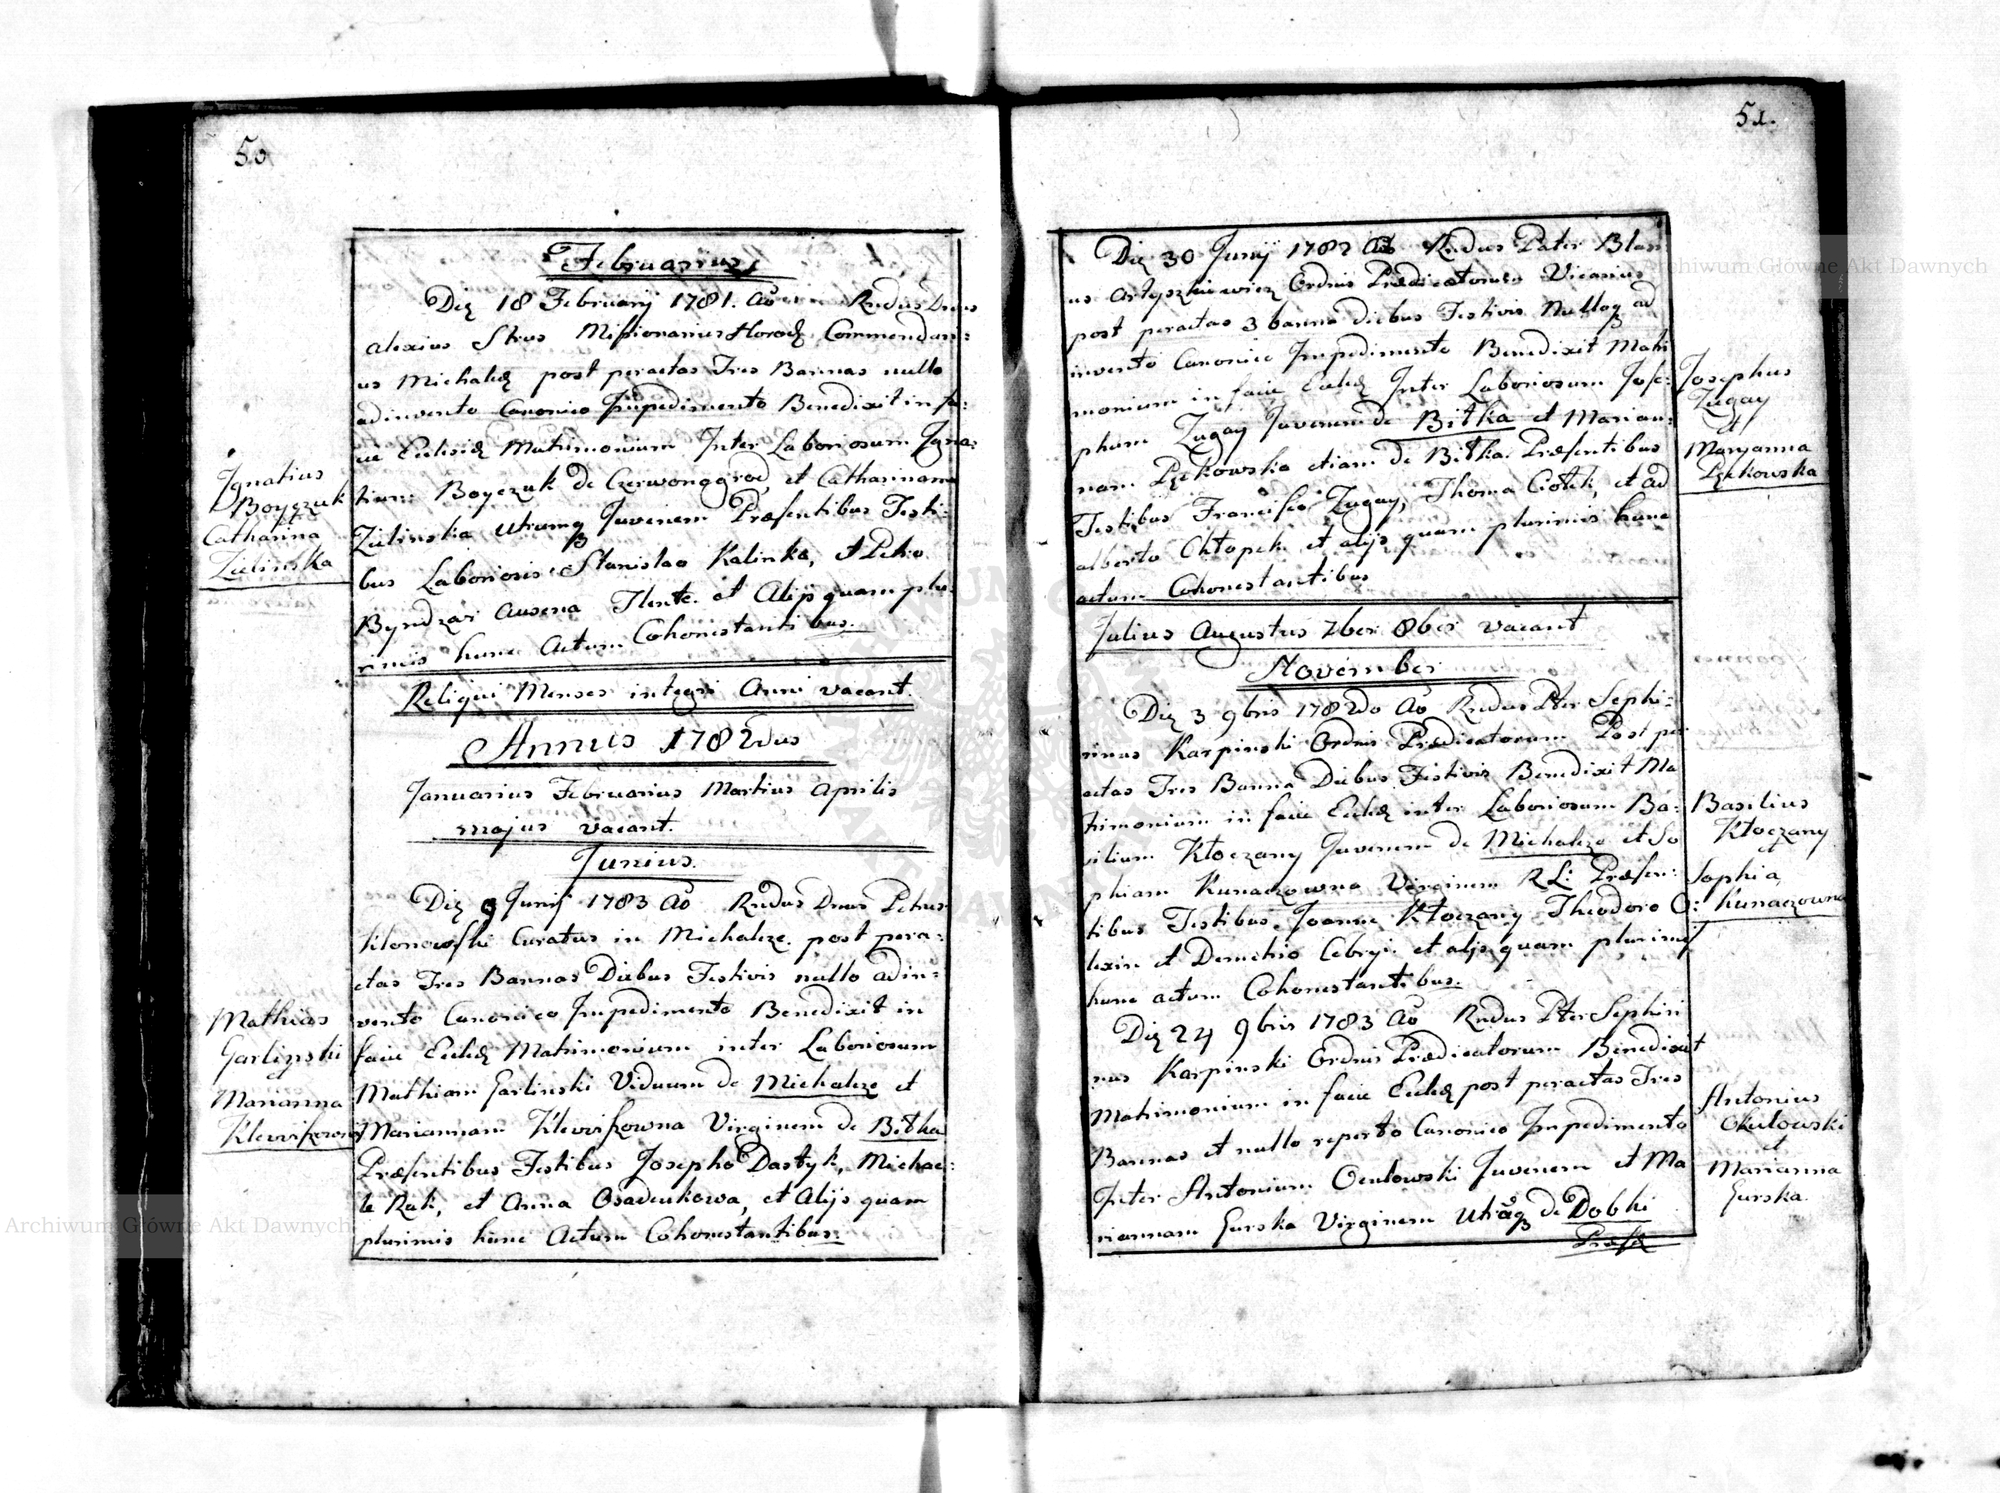 50
Februarius
Die 18 Februarij 1781. Aō Rndus Dnus
Alexius Missionarius Horod. Commendari=
us Michalcz post peractas Tres Bannas nullo
adinvento Canonico Impedimento Benedixit in fa=
cie Ecclesiæ Matrimonium Inter Laboriosum Igna=
tium Boyczuk de Czerwonogrod, et Catharinam
Zielinska utrumq Juvenem Præsentibus Testi=
bus Laboriosis Stanislao Kalinka, et Petro
et Alijs quam plu=
rimis hunc Actum Cohonestantibus.
Ignatius
Boyczuk
et
Catharina
Zielinska
Reliqui Menses integri Anni vacant.
Annus 1782dus
Januarius Februarius Martius Aprilis
majus vacant.
Junius.
Die 9 Junij 1783 Aō Rndus Dnus Petrus
Klonowski Curatus in Michalcze post pera=
ctas Tres Bannas Diebus Festivis nullo adin=
vento Canonico Impedimento Benedixit in
facie Eccliæ Matrimonium inter Laboriosum
Mathiam Garlinski Viduum de Michalcze et
Mariannam Virginem de Biłka
Præsentibus Testibus Josepho Dastyk, Michae=
le Rak, et Anna Osadcukowa, et Alijs quam
plurimis hunc Actum Cohonestantibus.
Mathias
Garlinski
et
Marianna
51.
Die 30 Junij 1782 Aō Rndus Pater Blasi
us Artyszkiewicz Ordnis Prædicatorum Vicarius
post peractas 3 banna diebus Festivis Nulloq ad
invento Canonico Impedimento Benedixit Matri
monium in facie Eccliæ Inter Laboriosum Jose=
phum Zugay Juvenem de Biłka et Marian=
nam Pękowska etiam de Biłka. Præsentibus
Testibus Francisco Zugay, Thoma Ciołek, et Ad
alberto Chłopek et alijs quam plurimis hunc
actum Cohonestantibus
Josephus
Zugay
et
Maryanna
Pękowska
Julius Augustus 7ber 8ber vacant
November
Die 3 9bris 1782do Aō Rndus Pter Sephi=
rinus Karpinski Ordnis Prædicatorum Post per
actas Tres Banna Diebus Festivis Benedixit Ma
trimonium in facie Eccliæ inter Laboriosum Ba=
silium Kłoczany Juvenem de Michalcze et So
phiam Kunaczowna Virginem RL: Præsen=
tibus Testibus Joanne Kłoczany Theodoro O=
lexin et Demetrio Cebryi et alijs quam plurimis
hunc actum Cohonestantibus.
Basilius
Kłoczany
et
Sophia
Kunaczowna
Die 24 9bris 1783 Aō Rndus Pter Sephiri
nus Karpinski Ordnis Prædicatorum Benedixit
Matrimonium in facie Eccliæ post peractas Tres
Bannas et nullo reperto Canonico Impedimento
Inter Antonium Oculowski Juvenem et Ma
riannam Gurska Virginem Utrāq de Dobki
Præse
Antonius
Okulowski
et
Marianna
Gurska.
Archiwum Główne Akt Dawnych
Archiwum Główne Akt Dawnych